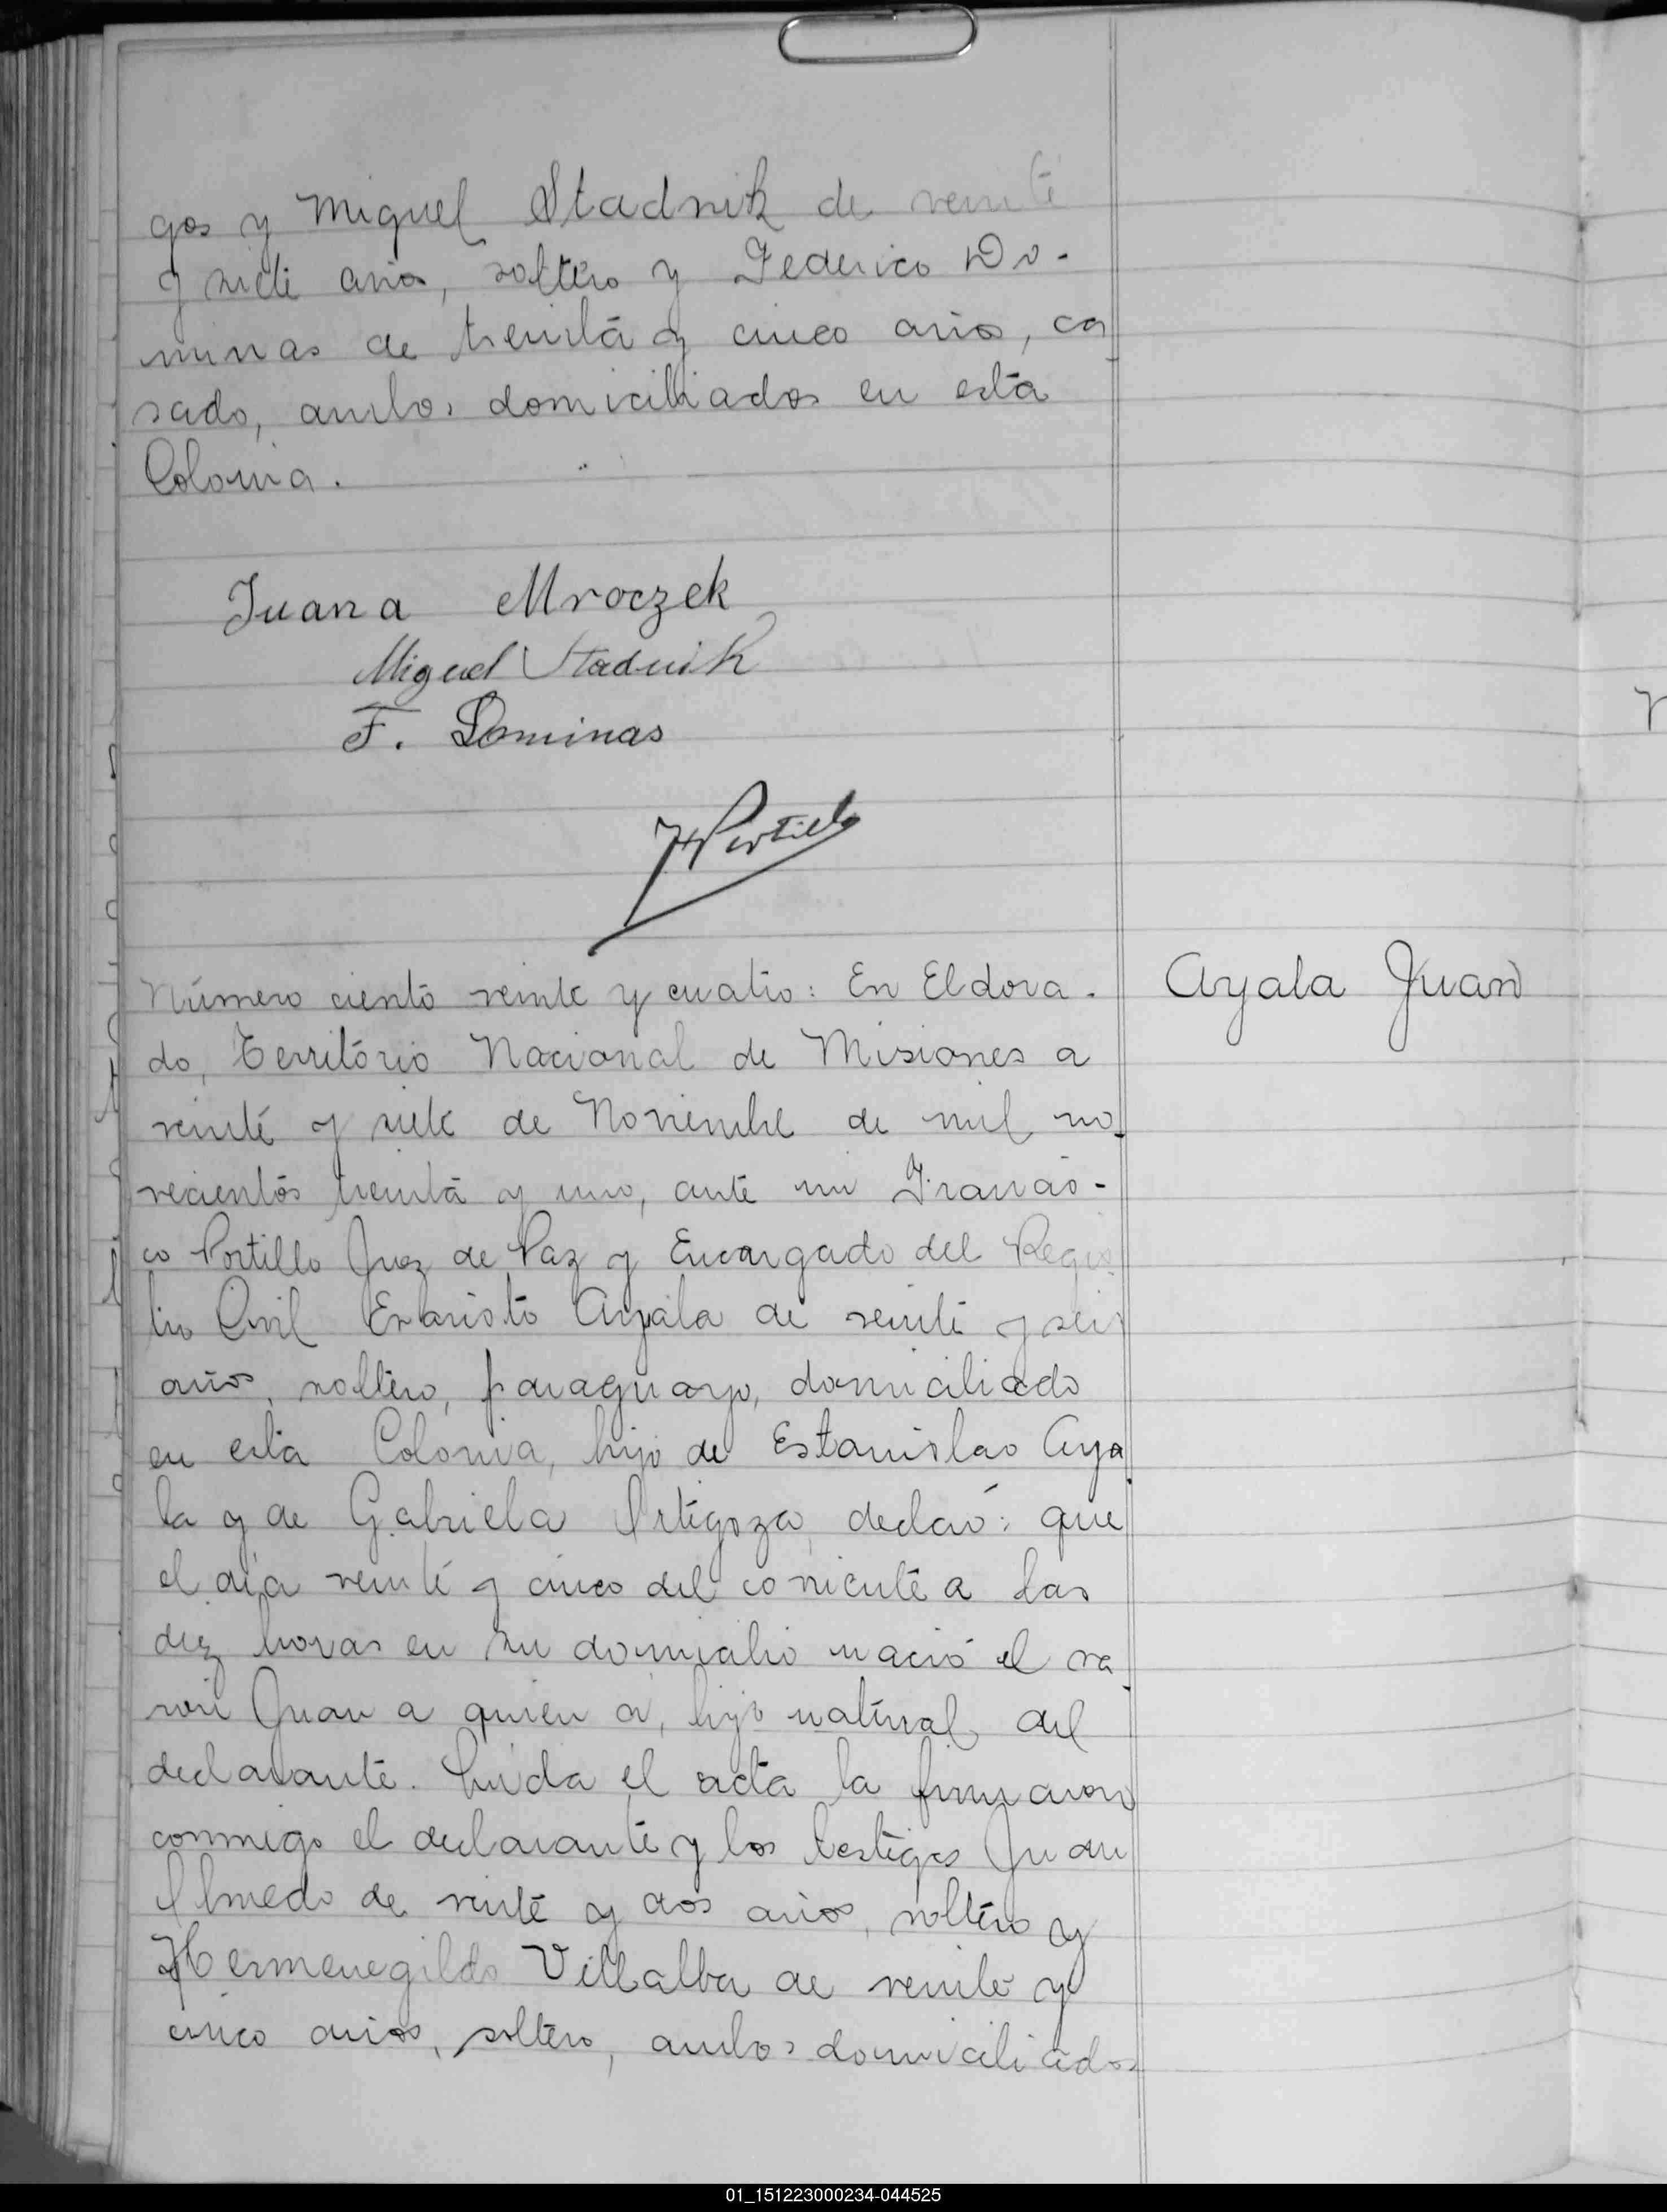 gos y Miguel Stadnik de veinte
y siete años, soltero y Federico Do-
minas de treinta y cinco años, ca
sado, ambos domiciliados en esta
Colonia.
Juana Mroczek
Miguel Stadnik
F. Dominas
FPortillo
Ayala Juan
Número ciento veinte y cuatro: En Eldora-
do, Território Nacional de Misiones a
veinte y siete de Noviembre de mil no-
vecientos treinta y uno, ante mi Francis-
co Portillo Juez de Paz y Encargado del Regis
tro Civil Evaristo Ayala de veinte y seis
años, soltero, paraguayo, domiciliado
en esta Colonia, hijo de Estanislao Aya
la y de Gabriela Artigoza, declaró: que
el día veinte y cinco del corriente a las
diez horas en su domicilio nació el va-
rón Juan a quien vi, hijo natural del
declarante. Leida el acta la firmaron
conmigo el declarante y los testigos Juan
Olmedo de veinte y dos años, soltero y
Hermenegildo Villalba de veinte y
cinco años, soltero, ambos domiciliados
01_151223000234-044525